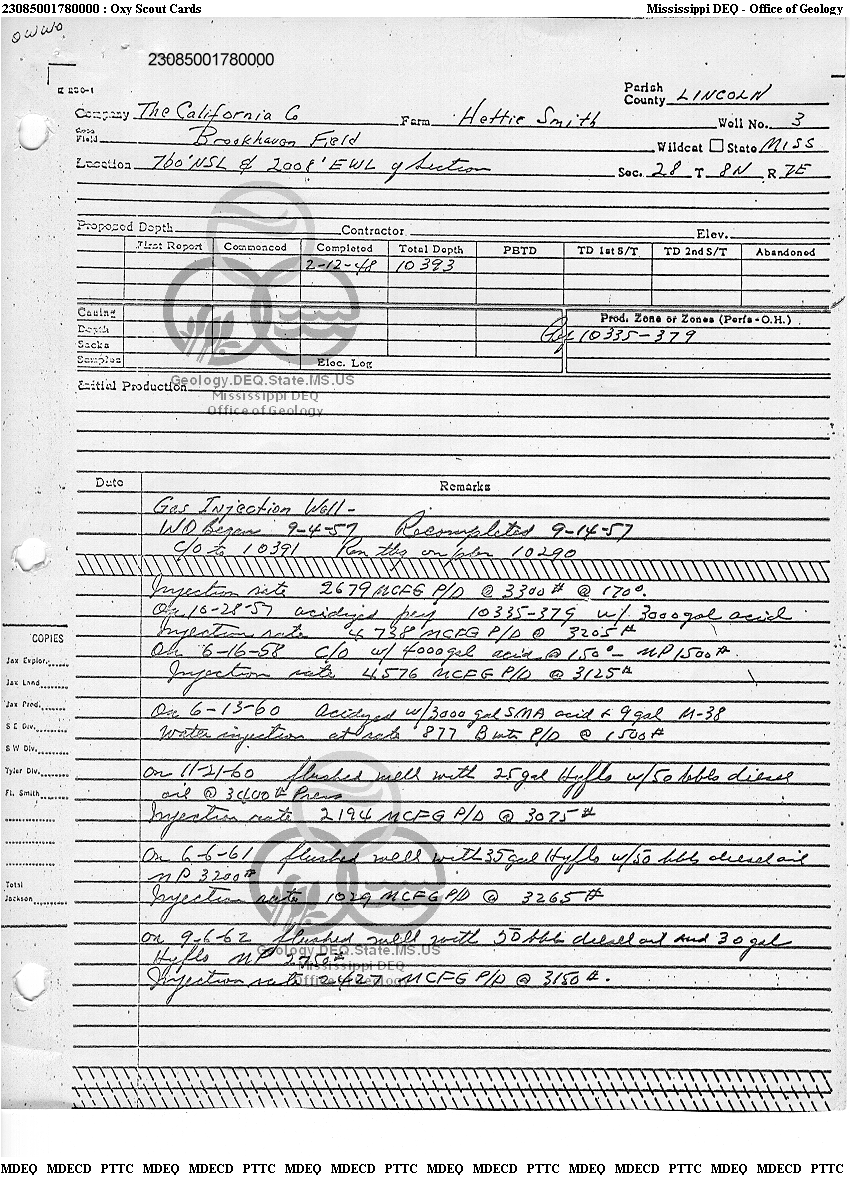 23085001780000 : Oxy Scout Cards Mississippi DEQ - Office of Geology
OWWO
23085001780000
Parish
County LINCOLN
Company The California Co Farm Hettie Smith Well No. 3
Field Brookhaven Field Wildcat State MISS
Location 760' NSL & 2008' EWL of Section Sec. 28 T 8N R 7E
Proposed Depth Contractor Elev.
First Report Commenced Completed Total Depth PBTD TD 1st S/T TD 2nd S/T Abandoned
2-12-48 10393
Casing Prod. Zone or Zones (Perfs - O.H.)
Depth Perf 10335-379
Sacks
Samples Elec. Log
Geology.DEQ.State.MS.US
Initial Production
Mississippi DEQ
Office of Geology
Date Remarks
Gas Injection Well -
WO Began 9-4-57 Recompleted 9-14-57
C/O to 10391 Ran tbg on pkr 10290
Injection rate 2679 MCFG P/D @ 3300# @ 170°.
On 10-28-57 acidized perf 10335-379 w/ 3000 gal acid
Injection rate 4738 MCFG P/D @ 3205#
COPIES
On 6-16-58 C/O w/ 4000 gal acid @ 150° - MP 1500#
Jax Explor.
Injection rate 4576 MCFG P/D @ 3125#
Jax Land
Jax Prod.
On 6-13-60 Acidized w/3000 gal SMA acid & 9 gal M-38
S E Div.
Water injection at rate 877 B wtr P/D @ 1500#
S W Div.
Tyler Div.
On 11-21-60 flushed well with 25 gal Hyflo w/50 bbls diesel
Ft. Smith
oil @ Press
Injection rate 2194 MCFG P/D @ 3075#
On 6-6-61 flushed well with 35 gal Hyflo w/50 bbls diesel oil
MP 3200#
Total
Jackson
Injection rate 1029 MCFG P/D @ 3265#
On 9-6-62 flushed well with 50 bbls diesel oil and 30 gal
Geology.DEQ.State.MS.US
Hyflo MP 2750#
Mississippi DEQ
Injection rate 2427 MCFG P/D @ 3150#.
Office of Geology
MDEQ MDECD PTTC MDEQ MDECD PTTC MDEQ MDECD PTTC MDEQ MDECD PTTC MDEQ MDECD PTTC MDEQ MDECD PTTC